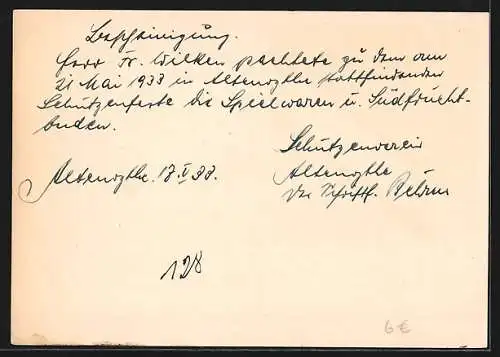 Bescheinigung.
Herr Fr. Wilken pachtete zu dem am
21 Mai 1933 in Altenoythe stattfindenden
Schützenfeste die Spielwaren u. Südfrucht-
buden.
Schützenverein
Altenoythe
Altenoythe. 17. V 33.
Der Schriftf.
128
6€